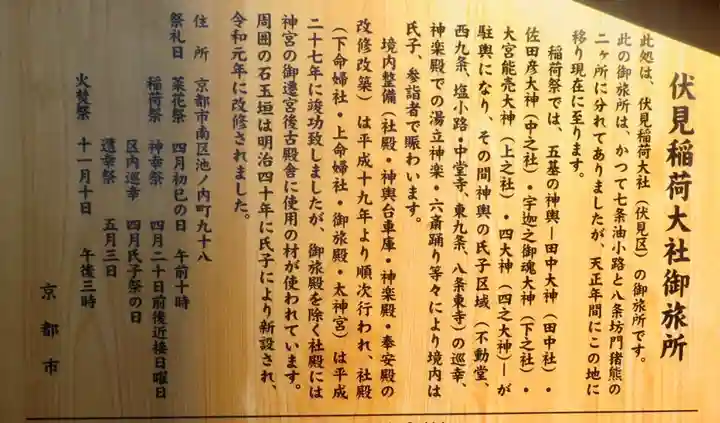 伏見稲荷大社御旅所
此処は、伏見稲荷大社（伏見区）の御旅所です。
此の御旅所は、かつて七条油小路と八条坊門猪熊の
二ヶ所に分れてありましたが、天正年間にこの地に
移り現在に至ります。
稲荷祭では、五基の神輿―田中大神（田中社）・
佐田彦大神（中之社）・宇迦之御魂大神（下之社）・
大宮能売大神（上之社）・四大神（四之大神）―が
駐輿になり、その間神輿の氏子区域（不動堂、
西九条、塩小路・中堂寺、東九条、八条東寺）の巡幸、
神楽殿での湯立神楽・六斎踊り等々により境内は
氏子、参詣者で賑わいます。
境内整備（社殿・神輿台車庫・神楽殿・奉安殿の
改修改築）は平成十九年より順次行われ、社殿
（下命婦社・上命婦社・御旅殿・大神宮）は平成
二十七年に竣功致しましたが、御旅殿を除く社殿には
神宮の御遷宮後古殿舎に使用の材が使われています。
周囲の石玉垣は明治四十年に氏子により新設され、
令和元年に改修されました。
住所　京都市南区池ノ内町九十八
祭礼日　菜花祭　四月初巳の日　午前十時
稲荷祭　神幸祭　四月二十日前後近接日曜日
区内巡幸　四月氏子祭の日
還幸祭　五月三日
火焚祭　十一月十日　午後三時
京都市